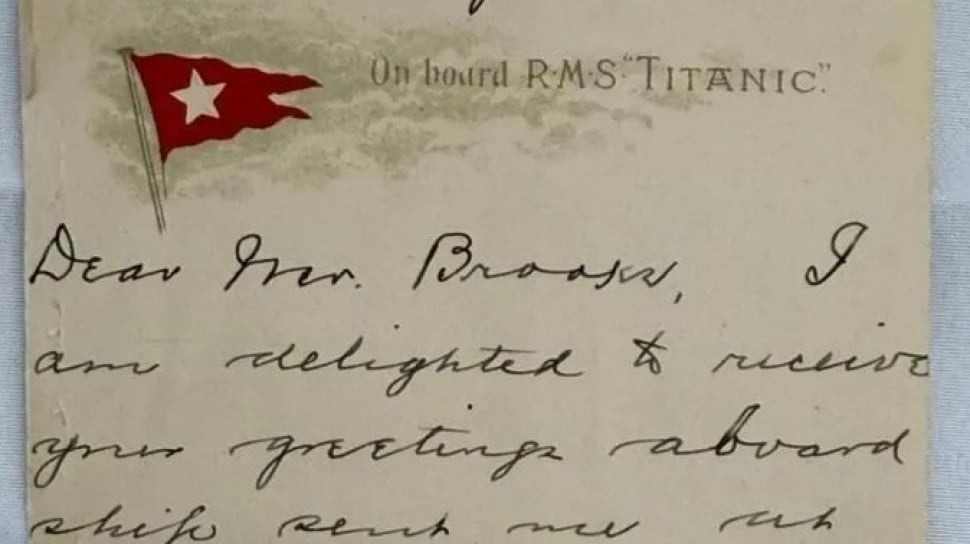 On board R·M·S "TITANIC".
Dear Mr. Brooks, I
am delighted to receive
your greetings aboard
ship sent me at